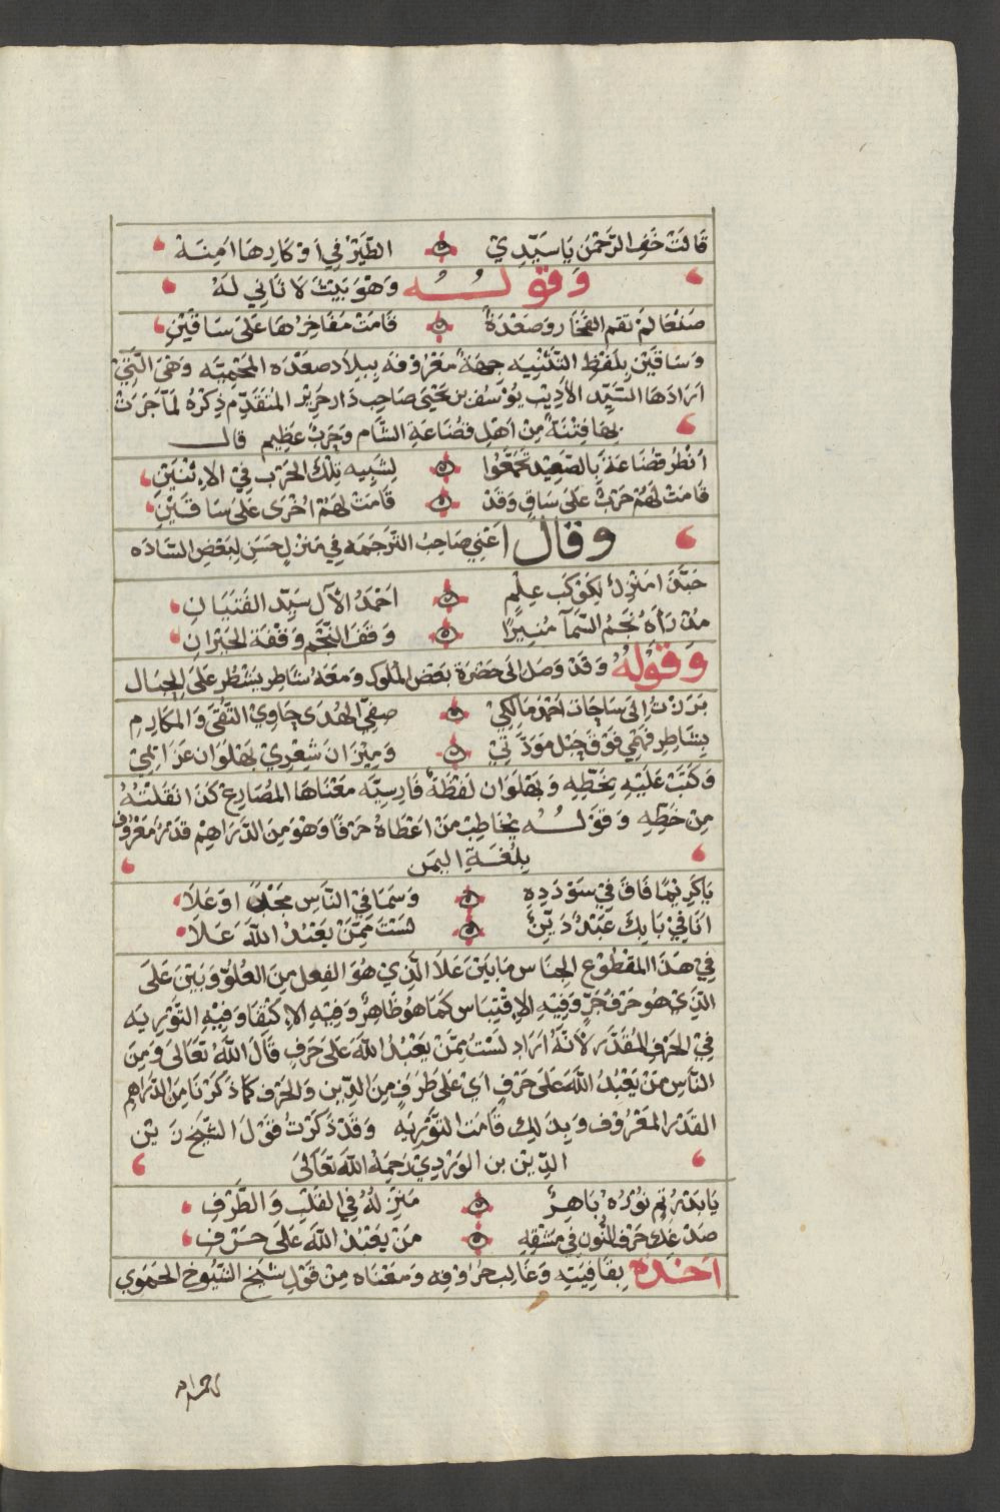 قَالَتْ خَفِ الرَّحْمٰنَ يَا سَيِّدِيْ ۞ الطَّيْرُ فِي اَوْكَارِهَا اٰمِنَهْ
وَقَوْلُـــهُ وَهُوَ بَيْتٌ لَا ثَانِي لَهُ
صَنْعَا لَمْ تقم الفَخَار وصَعْدَةُ ۞ قَامَتْ مَفَاخِرُهَا عَلَى سَاقَيْنِ
وَسَاقَيْنِ بِلَفْظِ التَّثْنِيَه جِهَةٌ مَعْرُوفَه بِبِلَاد صَعْدَه المَحْمِيَّه وَهْيَ الَّتِيْ
اَرَادَهَا السَّيِّد الأَدِيْب يُوْسُف بن يَحْيَى صَاحِب دَار حَرِيْر المُتَقَدِّم ذِكْرُهُ لَمَّا جَرَتْ
بِهَا فِتْنَةٌ مِنْ اَهْلِ قضَاعَةِ الشَّام وَحَرْبٌ عَظِيم قال
اُنْظُر قضَاعَةَ بِالصَّعِيْد تَجَمَّعُوا ۞ لِشَبِيه تِلْكَ الحَرْبِ فِيْ الاِثْنَيْنِ
قَامَتْ لَهُمْ حَرْبٌ عَلَى سَاقٍ وَقَدْ ۞ قَامَتْ لَهُمْ اُخْرَى عَلَى سَاقَيْنِ
وقَالَ اَعْنِي صَاحِبَ التَّرجَمَه فِي مَنْزِلٍ حَسَنٍ لِبَعْضِ السَّادَه
حَبَّذَا مَنْزِلٌ لِكَوْكَب عِلْمٍ ۞ اَحْمَدُ الآل سَيِّد الفِتْيَانِ
مُذْ رَاٰهُ نَجْمُ السَّمَآ مُنِيْرًا ۞ وَقَفَ النَّجْم وَقْفَةَ الحَيْرَانِ
وَقَوْلُهُ وَقَدْ وَصَلَ الَى حَضْرَةِ بَعْضِ المُلُوكِ وَمَعَهُ شَاطِر يَشْطُر عَلَى الحِبَال
بَرَزْتُ اِلَى سَاحَات اَحْمَدَ مَالِكِيْ ۞ صَفِيّ الهُدَى حَاوِيْ التُّقَى وَالمَكَارِمِ
بِشَاطِر فَهْمِي فَوْقَ حَبْل مَوَدَّتِيْ ۞ وَمِيْزَان شِعْرِيْ بَهْلَوَان عَزَائِمِيْ
وَكَتَبَ عَلَيْهِ بِخَطِّهِ وَبَهْلَوَان لَفْظَةٌ فَارِسِيَّه مَعْنَاهَا المُصَارِع كَذَا نَقَلْتُهُ
مِنْ خَطِّهِ وَقَوْلُـــهُ يُخَاطِبُ مَنْ اَعْطَاهُ حَرْفًا وَهُوَ مِنَ الدَّرَاهِمِ قَدْرٌ مَعْرُوفٌ
بِلُغَـــةِ اليَمَنِ
يَا كَرِيْمًا فَاقَ فِيْ سَوْدَدِهِ ۞ وَسَمَا فِيْ النَّاسِ مَجْدًا وَعَلَا
اَنَا فِيْ بَابِكَ عَبْدٌ دَيِّنٌ ۞ لَسْتُ مِمَّنْ يَعْبُدُ اللّٰهَ عَلَا
فِيْ هَذَا المَقْطُوْعِ الجِنَاسُ مَا بَيْنَ عَلَا الَّذِيْ هُوَ الفِعْل مِنَ العُلُوِّ وَبَيْنَ عَلَى
الَّذِيْ هُوَ حَرْف جَرٍّ وَفِيْهِ الاِقْتِبَاس كَمَا هُوَ ظَاهِرٌ وَفِيْهِ الاِكْتِفَا وَفِيْهِ التَّوْرِيَه
فِيْ الحَرْفِ المُقَدَّر لِأَنَّهُ اَرَادَ لَسْتُ مِمَّنْ يَعْبُدُ اللّٰهَ عَلَى حَرْفٍ قَالَ اللّٰهُ تَعَالَى وَمِنَ
النَّاسِ مَنْ يَعْبُدُ اللّٰهَ عَلَى حَرْفٍ اَيْ عَلَى طَرَفٍ مِنَ الدِّيْنِ وَالحَرْف كَمَا ذَكَرْنَا مِنَ الدَّرَاهِمِ
القَدْر المَعْرُوف وَبِذَلِكَ قَامَتِ التَّوْرِيَه وَقَدْ ذَكَرْتُ قَوْلَ الشَّيْخ زَيْن
الدِّيْن بن الوَرْدِيْ رَحِمَهُ اللّٰهُ تَعَالَى
يَا بَدْرُ تِم نُوْرُهُ بَاهِرٌ ۞ مَنْزِلُهُ فِي القَلْبِ وَالطَّرْفِ
صَدْ غُدَى حَرْف النُّون فِي مَشْقِهِ ۞ مَنْ يَعْبُدُ اللّٰهَ عَلَى حَرْفِ
اَخَذَهُ بِقَافِيَتِهِ وَغَالِب حُرُوْفِهِ وَمَعْنَاه مِنْ قَوْلِ شَيْخِ الشُّيُوخِ الحَمَوِي